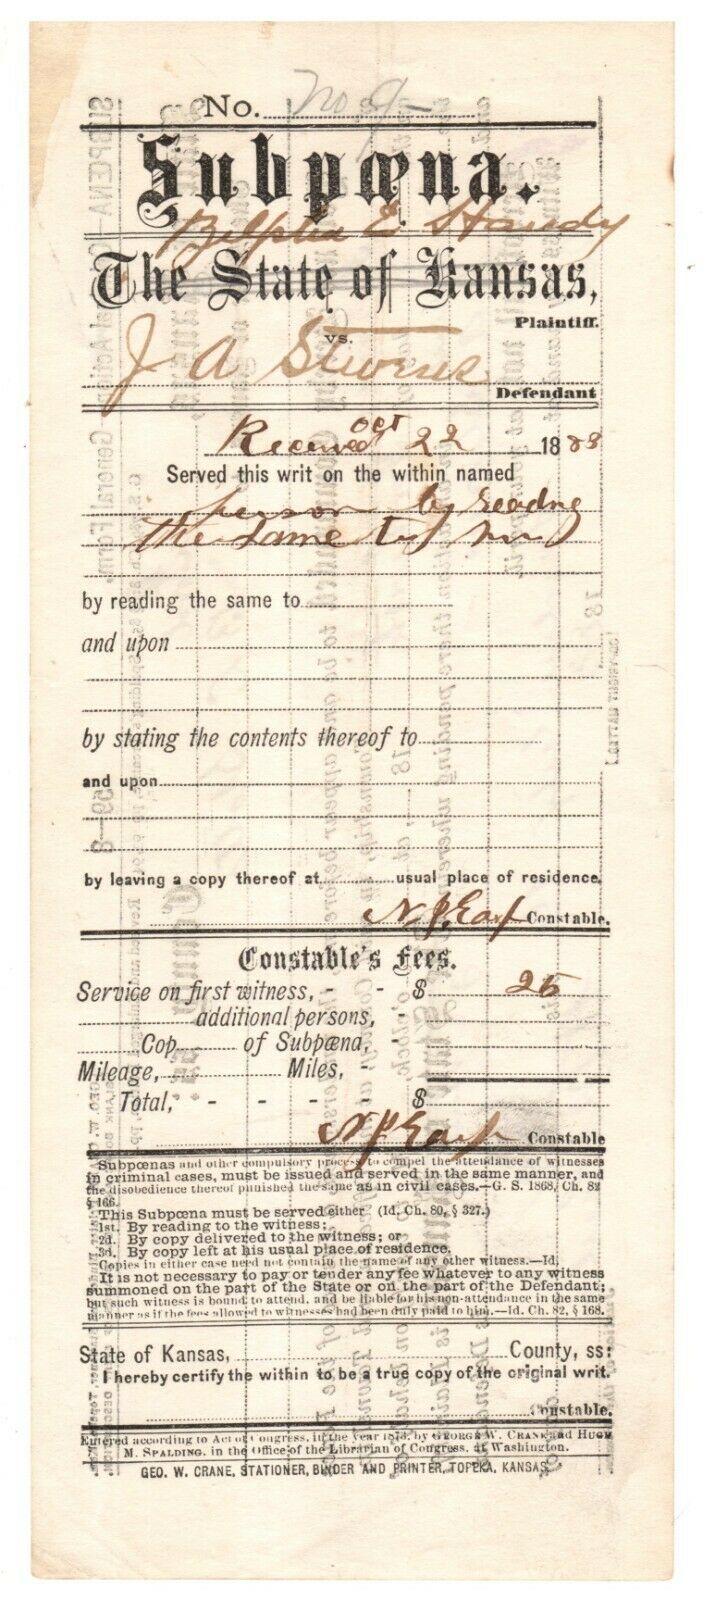 No. No 9
Subpœna.
E.
The State of Kansas,
Plaintiff.
vs.
J A Stevens
Defendant
Received Oct 22 1883
Served this writ on the within named
person by reading
the same to
by reading the same to
and upon
by stating the contents thereof to
and upon
by leaving a copy thereof at usual place of residence.
Constable.
Constable's Fees.
Service on first witness, - - $ 25
additional persons, -
Cop of Subpœna, "
Mileage, Miles, "
Total, - - - - $
Constable
Subpœnas and other compulsory process to compel the attendance of witnesses
in criminal cases, must be issued and served in the same manner, and
the disobedience thereof punished the same as in civil cases.—G. S. 1868, Ch. 82
§ 166.
This Subpœna must be served either (Id. Ch. 80, § 327.)
1st. By reading to the witness;
2d. By copy delivered to the witness; or
3d. By copy left at his usual place of residence.
Copies in either case need not contain the name of any other witness.—Id.
It is not necessary to pay or tender any fee whatever to any witness
summoned on the part of the State or on the part of the Defendant;
but such witness is bound to attend, and be liable for his non-attendance in the same
manner as if the fees allowed to witnesses had been duly paid to him.—Id. Ch. 82, § 168.
State of Kansas, County, ss:
I hereby certify the within to be a true copy of the original writ.
Constable.
Entered according to Act of Congress, in the year 1873, by George W. Crane and Hugh
M. Spalding, in the Office of the Librarian of Congress, at Washington.
GEO. W. CRANE, STATIONER, BINDER AND PRINTER, TOPEKA, KANSAS.